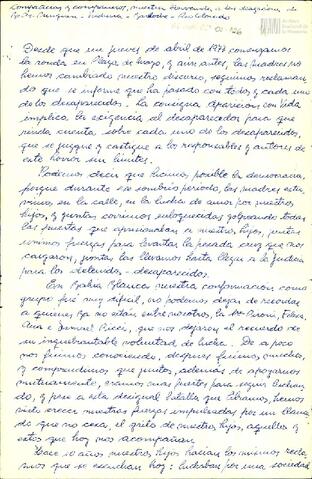 Compañeras y compañeros, nuestra bienvenida a las
Desde que un jueves de abril de 1977 comenzamos
la ronda en Plaza de Mayo, y aún antes, las madres no
hemos cambiado nuestro discurso, seguimos reclaman
do que se informe que ha pasado con todos y cada uno
de los desaparecidos. La consigna aparición con vida
implica la exigencia al desaparecedor para que
rinda cuenta sobre cada uno de los desaparecidos,
que se juzgue y castigue a los responsables y autores de
este horror sin límites.
Podemos decir que hicimos posible la democracia,
porque durante ese sombrío período, las madres estu
vimos en la calle, en la lucha de amor por nuestros
hijos, y juntas corrimos enloquecidas golpeando todas
las puertas que aprisionaban a nuestros hijos, juntas
unimos fuerzas para levantar la pesada cruz que nos
cargaron, juntas las llevamos hasta llegar a la Justicia
para los detenidos-desaparecidos.
En Bahía Blanca nuestra conformación como
grupo fué muy difícil, no podemos dejar de recordar
a quienes ya no están entre nosotros, la Sra.
Ana e Ismael Ricci, que nos dejaron el recuerdo de
su inquebrantable voluntad de lucha. De a poco
nos fuimos conociendo, después fuimos muchas,
y comprendimos que juntas, además de apoyarnos
mutuamente, éramos más fuertes para seguir luchan
do, y pese a esta desigual batalla que libramos, hemos
visto crecer nuestras fuerzas impulsadas por un llama
do que no cesa, el grito de nuestros hijos, aquellos y
estos que hoy nos acompañan.
Hace 10 años nuestros hijos hacían los mismos recla
mos que se escuchan hoy: luchaban por una sociedad